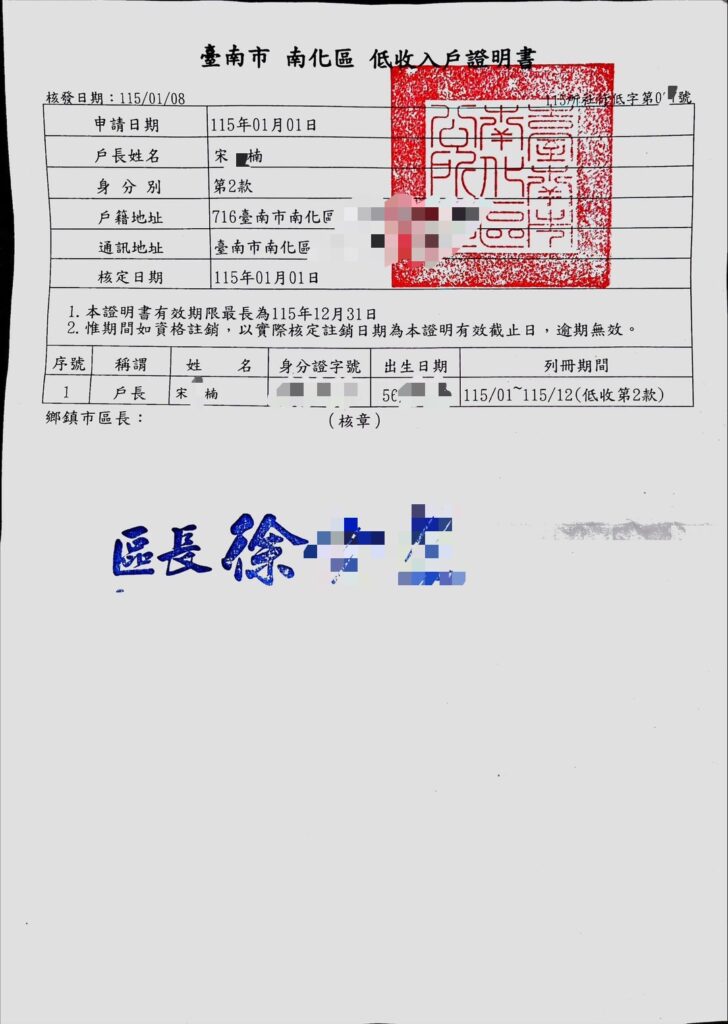 臺南市 南化區 低收入戶證明書
核發日期：115/01/08
號
申請日期 115年01月01日
戶長姓名 宋 楠
身分別 第2款
戶籍地址 716臺南市南化區
通訊地址 臺南市南化區
核定日期 115年01月01日
臺南市南化區公所
1. 本證明書有效期限最長為115年12月31日
2. 惟期間如資格註銷，以實際核定註銷日期為本證明有效截止日，逾期無效。
序號 稱謂 姓 名 身分證字號 出生日期 列冊期間
1 戶長 宋 楠 56 115/01~115/12(低收第2款)
鄉鎮市區長： (核章)
區長 徐